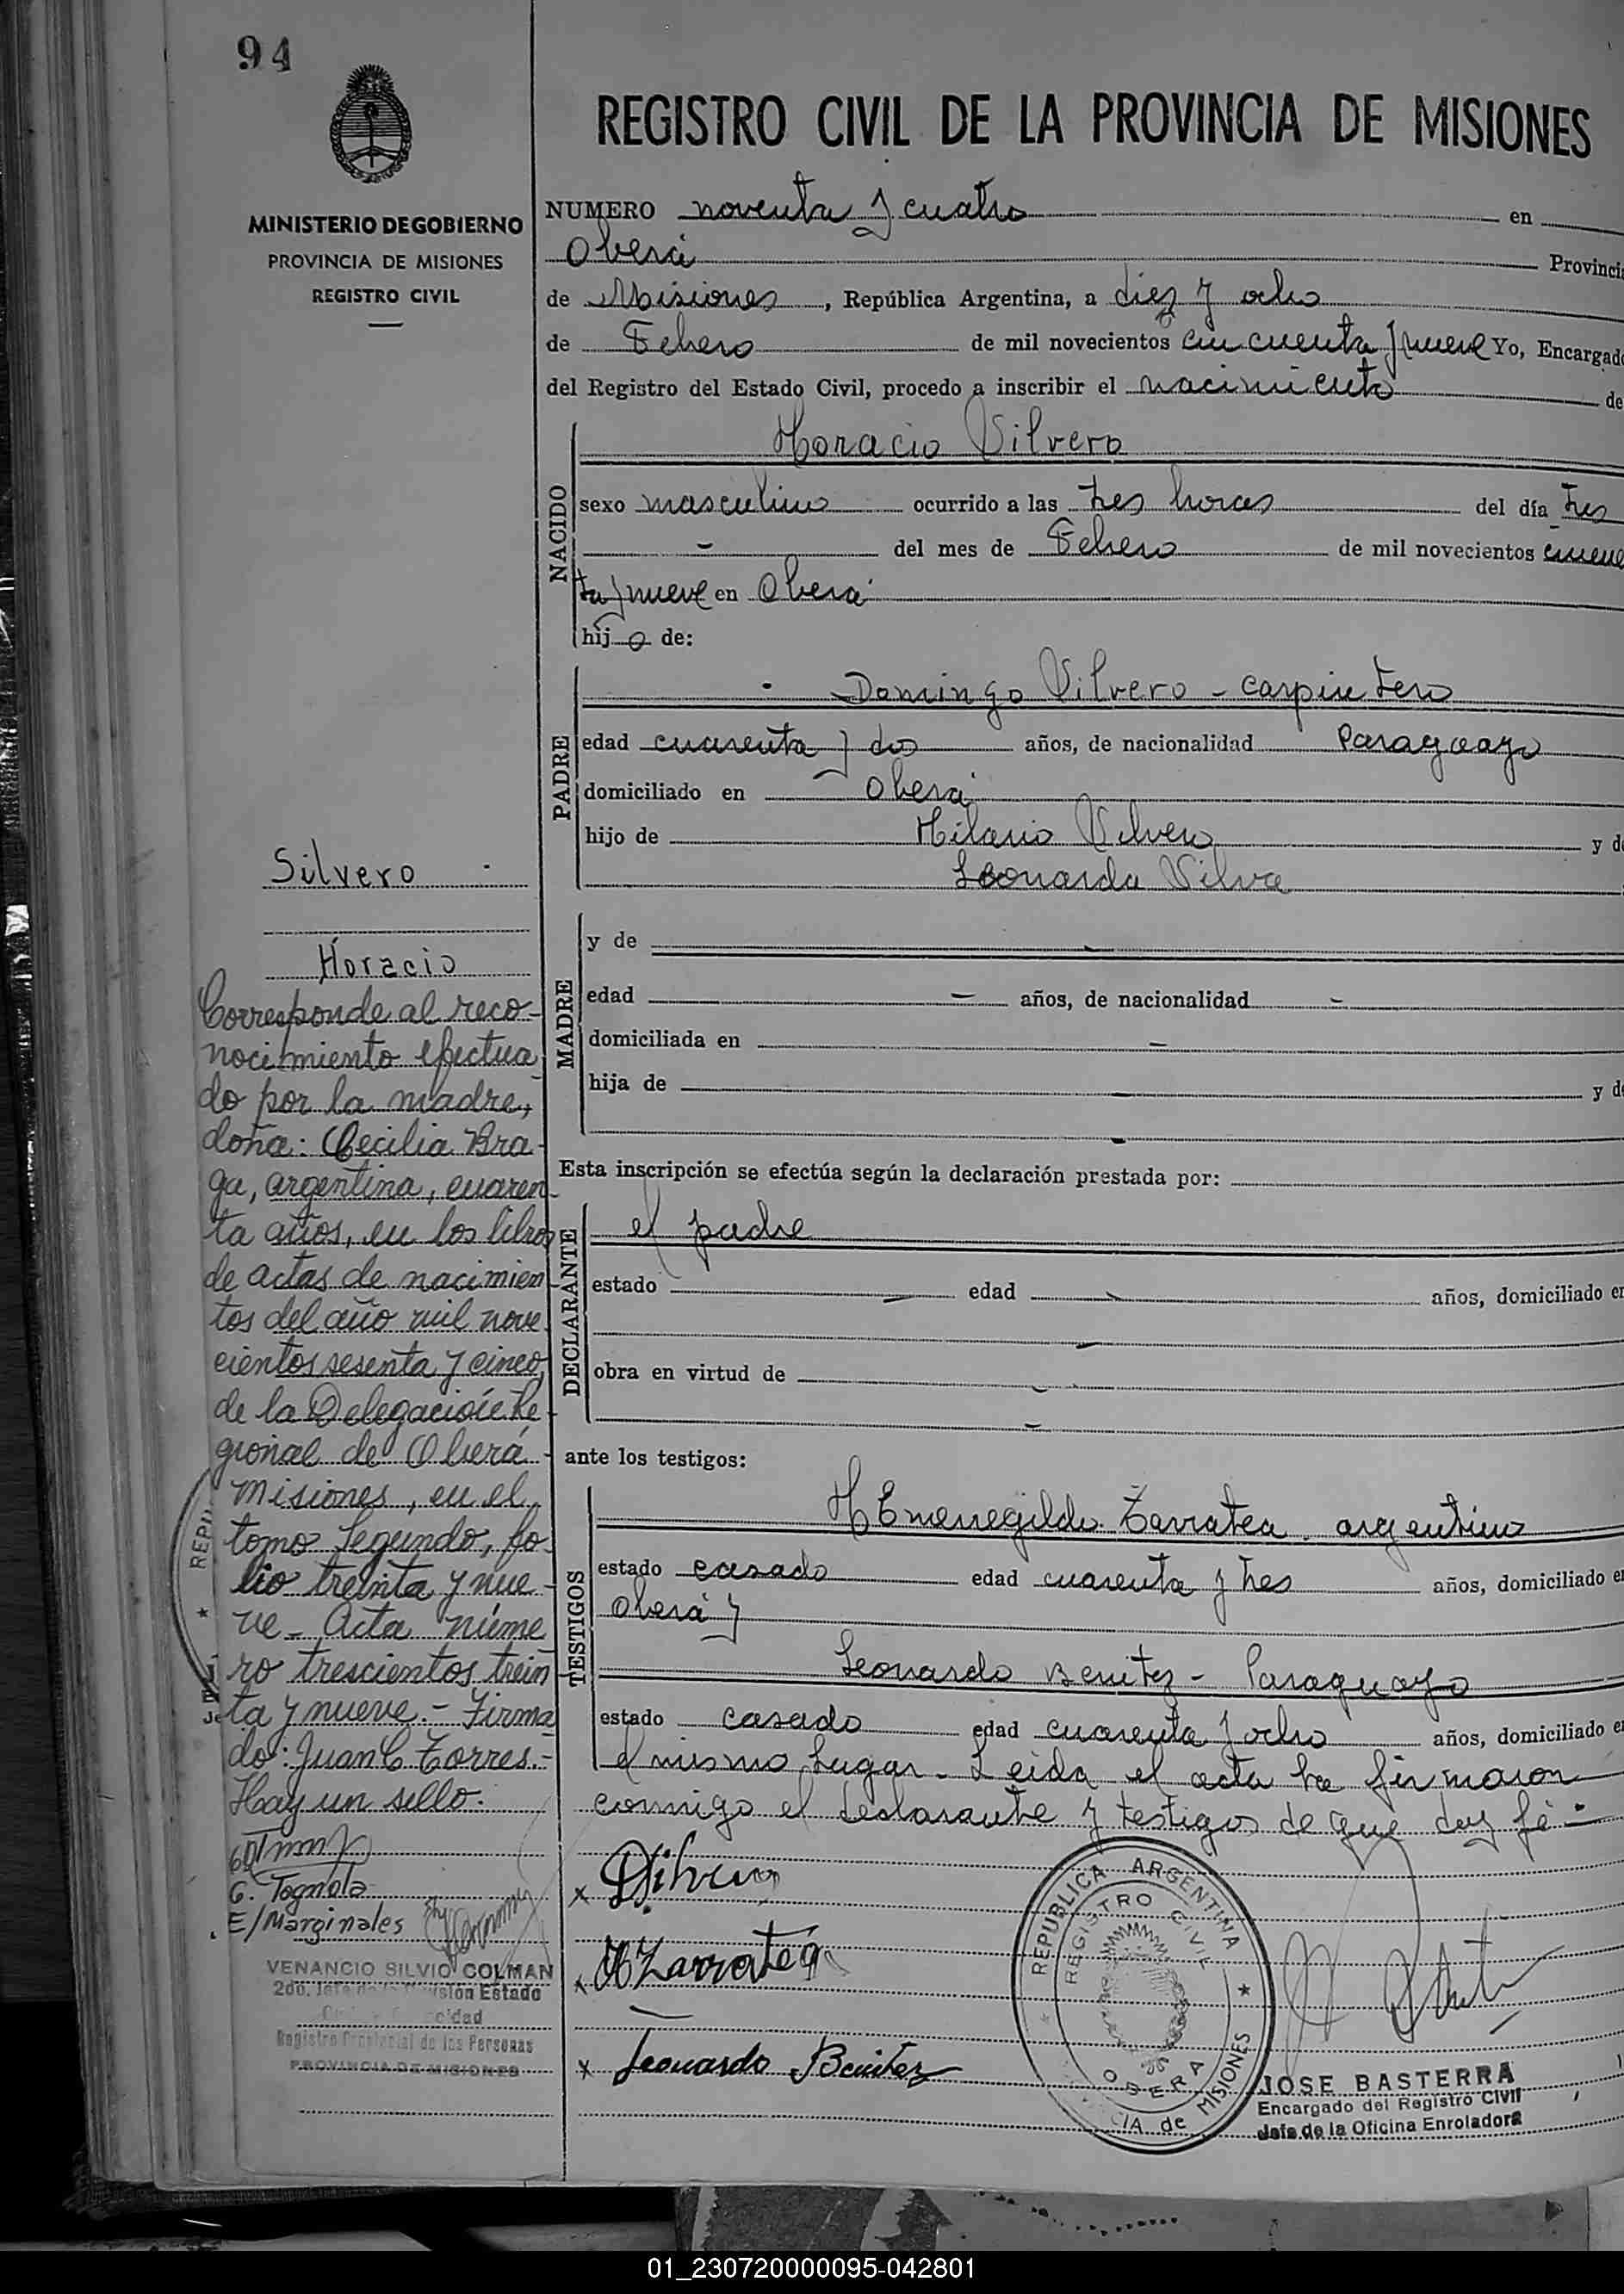 94
REGISTRO CIVIL DE LA PROVINCIA DE MISIONES
MINISTERIO DE GOBIERNO
PROVINCIA DE MISIONES
REGISTRO CIVIL
NUMERO noventa y cuatro en
Oberá Provincia
de Misiones, República Argentina, a diez y ocho
de Febrero de mil novecientos cincuenta y nueve Yo, Encargado
del Registro del Estado Civil, procedo a inscribir el nacimiento de
NACIDO
Horacio Silvero
sexo masculino ocurrido a las tres horas del día tres
- del mes de Febrero de mil novecientos cincuen
ta y nueve en Oberá
hijo de:
PADRE
Domingo Silvero - carpintero
edad cuarenta y dos años, de nacionalidad Paraguayo
domiciliado en Oberá
hijo de Hilario Silvero y de
Leonarda Silva
MADRE
y de -
edad - años, de nacionalidad -
domiciliada en -
hija de - y de
-
Esta inscripción se efectúa según la declaración prestada por:
DECLARANTE
el padre
estado - edad - años, domiciliado en
-
obra en virtud de -
-
ante los testigos:
TESTIGOS
HEmenegildo Zarratea. argentino
estado casado edad cuarenta y tres años, domiciliado en
Oberá y
Leonardo Benitez - Paraguayo
estado casado edad cuarenta y ocho años, domiciliado en
el mismo lugar. Leida el acta la firmaron
conmigo el declarante y testigos de que doy fé -
x DSilvero
x HZarratea
x Leonardo Benitez
REPUBLICA ARGENTINA
REGISTRO CIVIL
OBERA
CIA de MISIONES
JOSE BASTERRA
Encargado del Registro Civil
Jefe de la Oficina Enroladora
Silvero -
Horacio
Corresponde al reco-
nocimiento efectua
do por la madre,
doña: Cecilia Bra-
ga, argentina, cuaren-
ta años, en los libros
de actas de nacimien-
tos del año mil nove
cientos sesenta y cinco,
de la Delegación Re-
gional de Oberá -
Misiones, en el
tomo Segundo, fo-
lio treinta y nue-
ve - Acta núme
ro trescientos trein
ta y nueve. - Firma
do: Juan C. Torres. -
Hay un sello.
G. Tognola
E/Marginales
REPU
VENANCIO SILVIO COLMAN
2do. Jefe de la División Estado
Registro Provincial de las Personas
PROVINCIA DE MISIONES
01_230720000095-042801